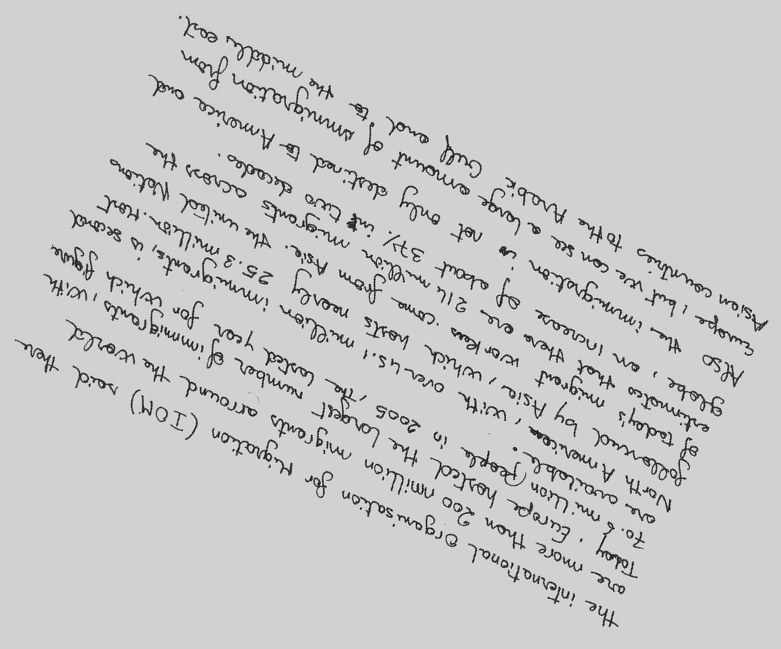 the international organisation for Migration (IOM) said there
are more than 200 million migrants arround the world
Today, Europe hosted the largest number of immigrants, with
70.6 million people in 2005, the lasted year for which figure
are available.
North American, with over 45.1 million immigrants, is second
followed by Asia, which hosts nearly 25.3 million. Most
of today's migrant workers come from Asia. the united Nations
estimates that there are 214 million migrants across the
globe, an increase of about 37% in two decades.
Also the immigration is not only destined to America and
Europe, but we can see a large amount of immigration from
Asian countries to the Arabic Gulf and to the middle east.